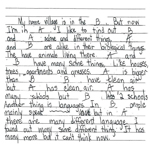 My home village is in the B. But now
I'm in A. I like to find out B
and A some and different things. B
and B are alike in their biological things.
The have animals living there. A and
B have many same things. Like houses,
trees, apartments and grasses. A is bigger
than B. B have clean air
but A has clean air. A has
many schools but B has 2 schools
Another thing is languages. In B people
mainly speak but in A
there are many different language I
found out many same different things. It has
many more but I can't think now.